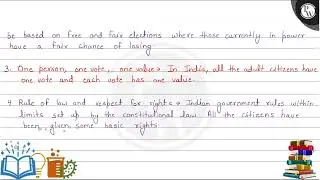 be based on free and fair elections where those currently in power
have a fair chance of losing
3. One person, one vote, one value → In India, all the adult citizens have
one vote and each vote has one value.
4. Rule of law and respect for rights → Indian government rules within
limits set up by the constitutional law. All the citizens have
been given some basic rights